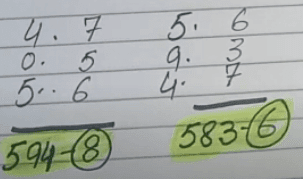 4. 7 5. 6
0. 5 9. 3
5.. 6 4. 7
594-8 583-6